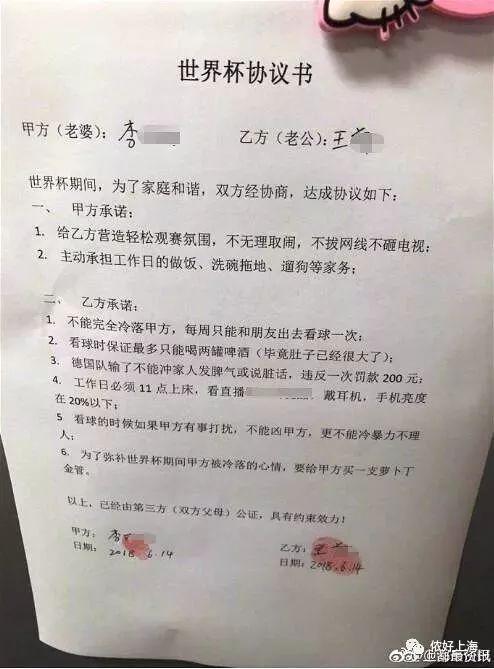 世界杯协议书
甲方（老婆）：李 乙方（老公）：王
世界杯期间，为了家庭和谐，双方经协商，达成协议如下：
一、 甲方承诺：
1. 给乙方营造轻松观赛氛围，不无理取闹，不拔网线不砸电视；
2. 主动承担工作日的做饭、洗碗拖地、遛狗等家务；
二、 乙方承诺：
1. 不能完全冷落甲方，每周只能和朋友出去看球一次；
2. 看球时保证最多只能喝两罐啤酒（毕竟肚子已经很大了）；
3. 德国队输了不能冲家人发脾气或说脏话，违反一次罚款 200 元；
4. 工作日必须 11 点上床，看直播 戴耳机，手机亮度
在 20%以下；
5 看球的时候如果甲方有事打扰，不能凶甲方，更不能冷暴力不理
人；
6. 为了弥补世界杯期间甲方被冷落的心情，要给甲方买一支萝卜丁
金管。
以上，已经由第三方（双方父母）公证，具有约束效力！
甲方：李 乙方：王
日期：2018.6.14 日期：2018.6.14
侬好上海
@都最资讯